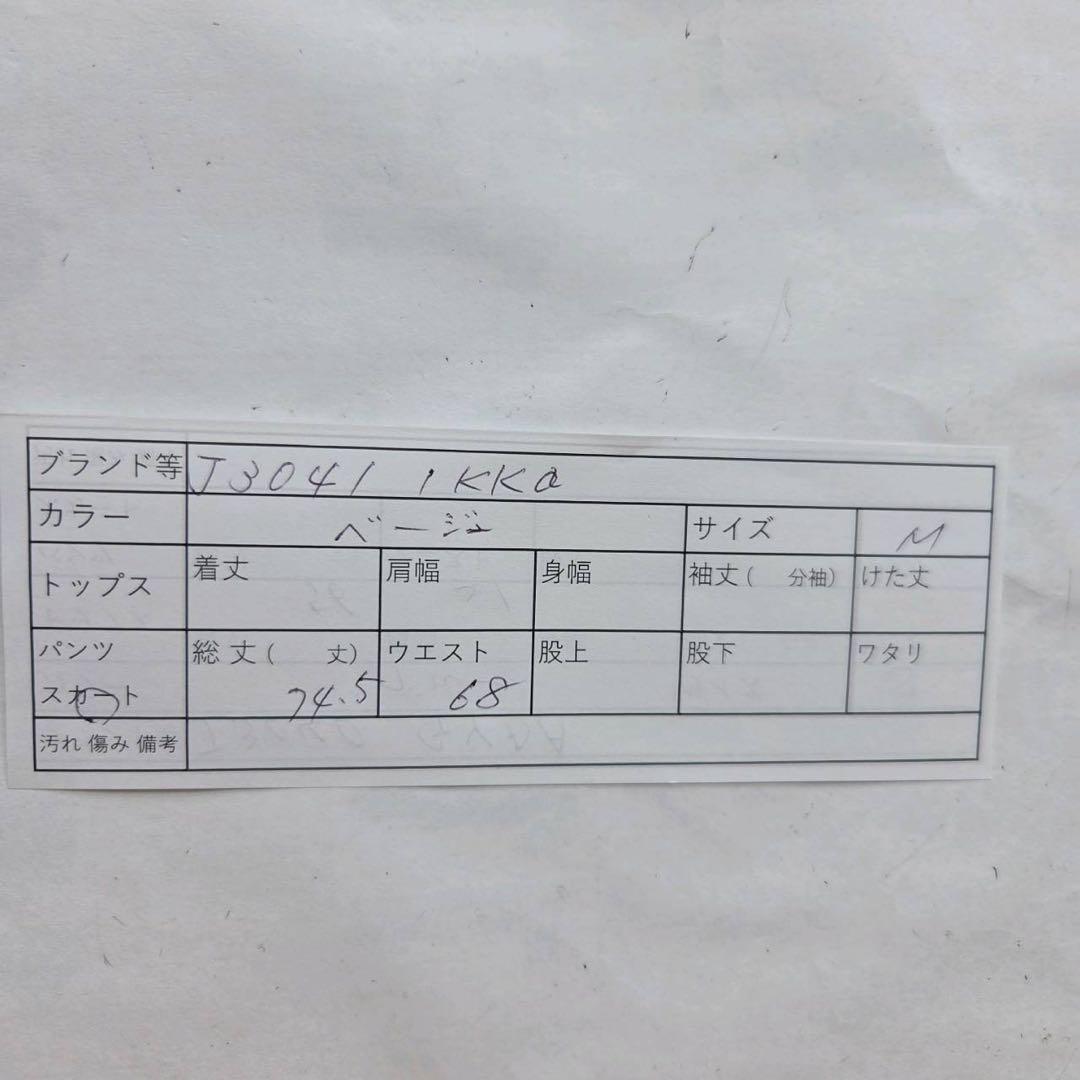 ブランド等 J3041 IKKA
カラー ベージュ サイズ M
トップス 着丈 肩幅 身幅 袖丈( 分袖) けた丈
パンツ 総丈( 丈) ウエスト 股上 股下 ワタリ
スカート 74.5 68
汚れ 傷み 備考